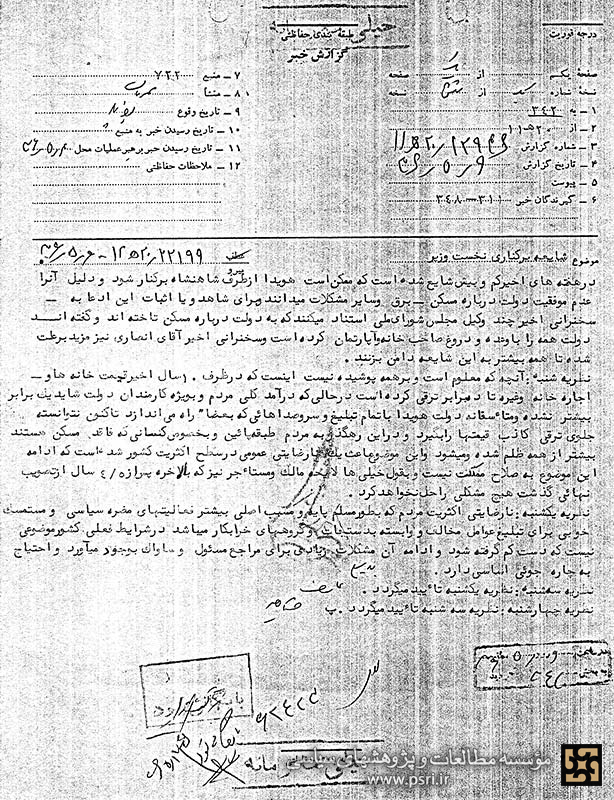 خیلی
طبقه بندی حفاظتی
گزارش خبر
درجه فوریت
صفحه یک از صفحه
نسخه شماره از نسخه
۱ - به ۳۴۲
۲ - از ۲۰ ه ۱۱
۳ - شماره گزارش
۴ - تاریخ گزارش
۵ - پیوست
۶ - گیرندگان خبر
۷ - منبع ۷۲۲
۸ - منشأ
۹ - تاریخ وقوع
۱۰ - تاریخ رسیدن خبر به منبع
۱۱ - تاریخ رسیدن خبر برهبر عملیات محل
۱۲ - ملاحظات حفاظتی
موضوع شایعه برکناری نخست وزیر
در هفته های اخیر کم و بیش شایع شده است که ممکن است هویدا از طرف شاهنشاه برکنار شود و دلیل آنرا
عدم موفقیت دولت درباره مسکن - برق و سایر مشکلات میدانند و برای شاهد و یا اثبات این ادعا به -
سخنرانی اخیر چند وکیل مجلس شورای ملی استناد میکنند که به دولت درباره مسکن تاخته اند و گفته انـد
دولت همه را با وعده و دروغ صاحب خانه و آپارتمان کرده است و سخنرانی اخیر آقای انصاری نیز مزید بر علت
شده تا همه بیشتر به این شایعه دامن بزنند .
نظریه شنبه : آنچه که معلوم است و بر همه پوشیده نیست اینست که در ظرف ۱۰ سال اخیر قیمت خانه ها و -
اجاره خانه وغیره تا ده برابر ترقی کرده است در حالی که درآمد کلی مردم و بویژه کارمندان دولت شاید یک برابر
بیشتر نشده و متأسفانه دولت هویدا با تمام تبلیغ و سر و صداهائی که بعضا" راه می اندازد تاکنون نتوانسته
جلوی ترقی کاذب قیمتها را بگیرد و در این رهگذر به مردم طبقه پائین و بخصوص کسانی که فاقد مسکن هستند
بیشتر از همه ظلم شده و میشود و این موضوع باعث یک نارضایتی عمومی در سطح اکثریت کشور شده است که ادامه
این موضوع به صلاح مملکت نیست و بقول خیلی ها لایحه مالک و مستأجر نیز که بالاخره پس از ۴/۵ سال از تصویب
نهائی گذشت هیچ مشکلی را حل نخواهد کرد .
نظریه یکشنبه : نارضایتی اکثریت مردم که بطور مسلم پایه و مسبب اصلی بیشتر فعالیتهای مضره سیاسی و مستمسک
خوبی برای تبلیغ عوامل مخالف و وابسته بدستجات و گروههای خرابکار میباشد در شرایط فعلی کشور موضوعی
نیست که دست کم گرفته شود و ادامه آن مشکلات زیادی برای مراجع مسئول و ساواک بوجود میآورد و احتیاج
به چاره جوئی اساسی دارد .
نظریه سه شنبه : نظریه یکشنبه تأیید میگردد .
نظریه چهارشنبه : نظریه سه شنبه تأیید میگردد . پ
بایگانی شود
خیلی محرمانه
مؤسسه مطالعات و پژوهشهای سیاسی
www.psri.ir